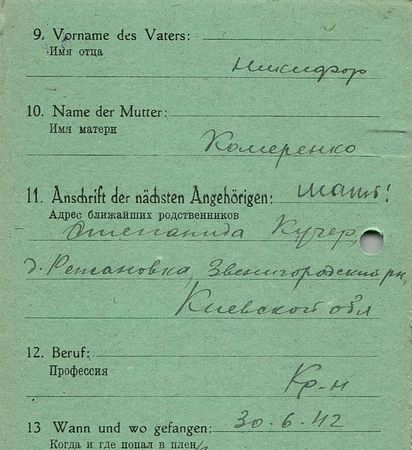 9. Vorname des Vaters:
Имя отца
Никифор
10. Name der Mutter:
Имя матери
Комеренко
11. Anschrift der nächsten Angehörigen: мать:
Адрес ближайших родственников
Степанида Кучер,
д. Рыжановка, Звенигородский рн,
Киевской обл
12. Beruf:
Профессия
Кр-н
13 Wann und wo gefangen: 30.6.42
Когда и где попал в плен